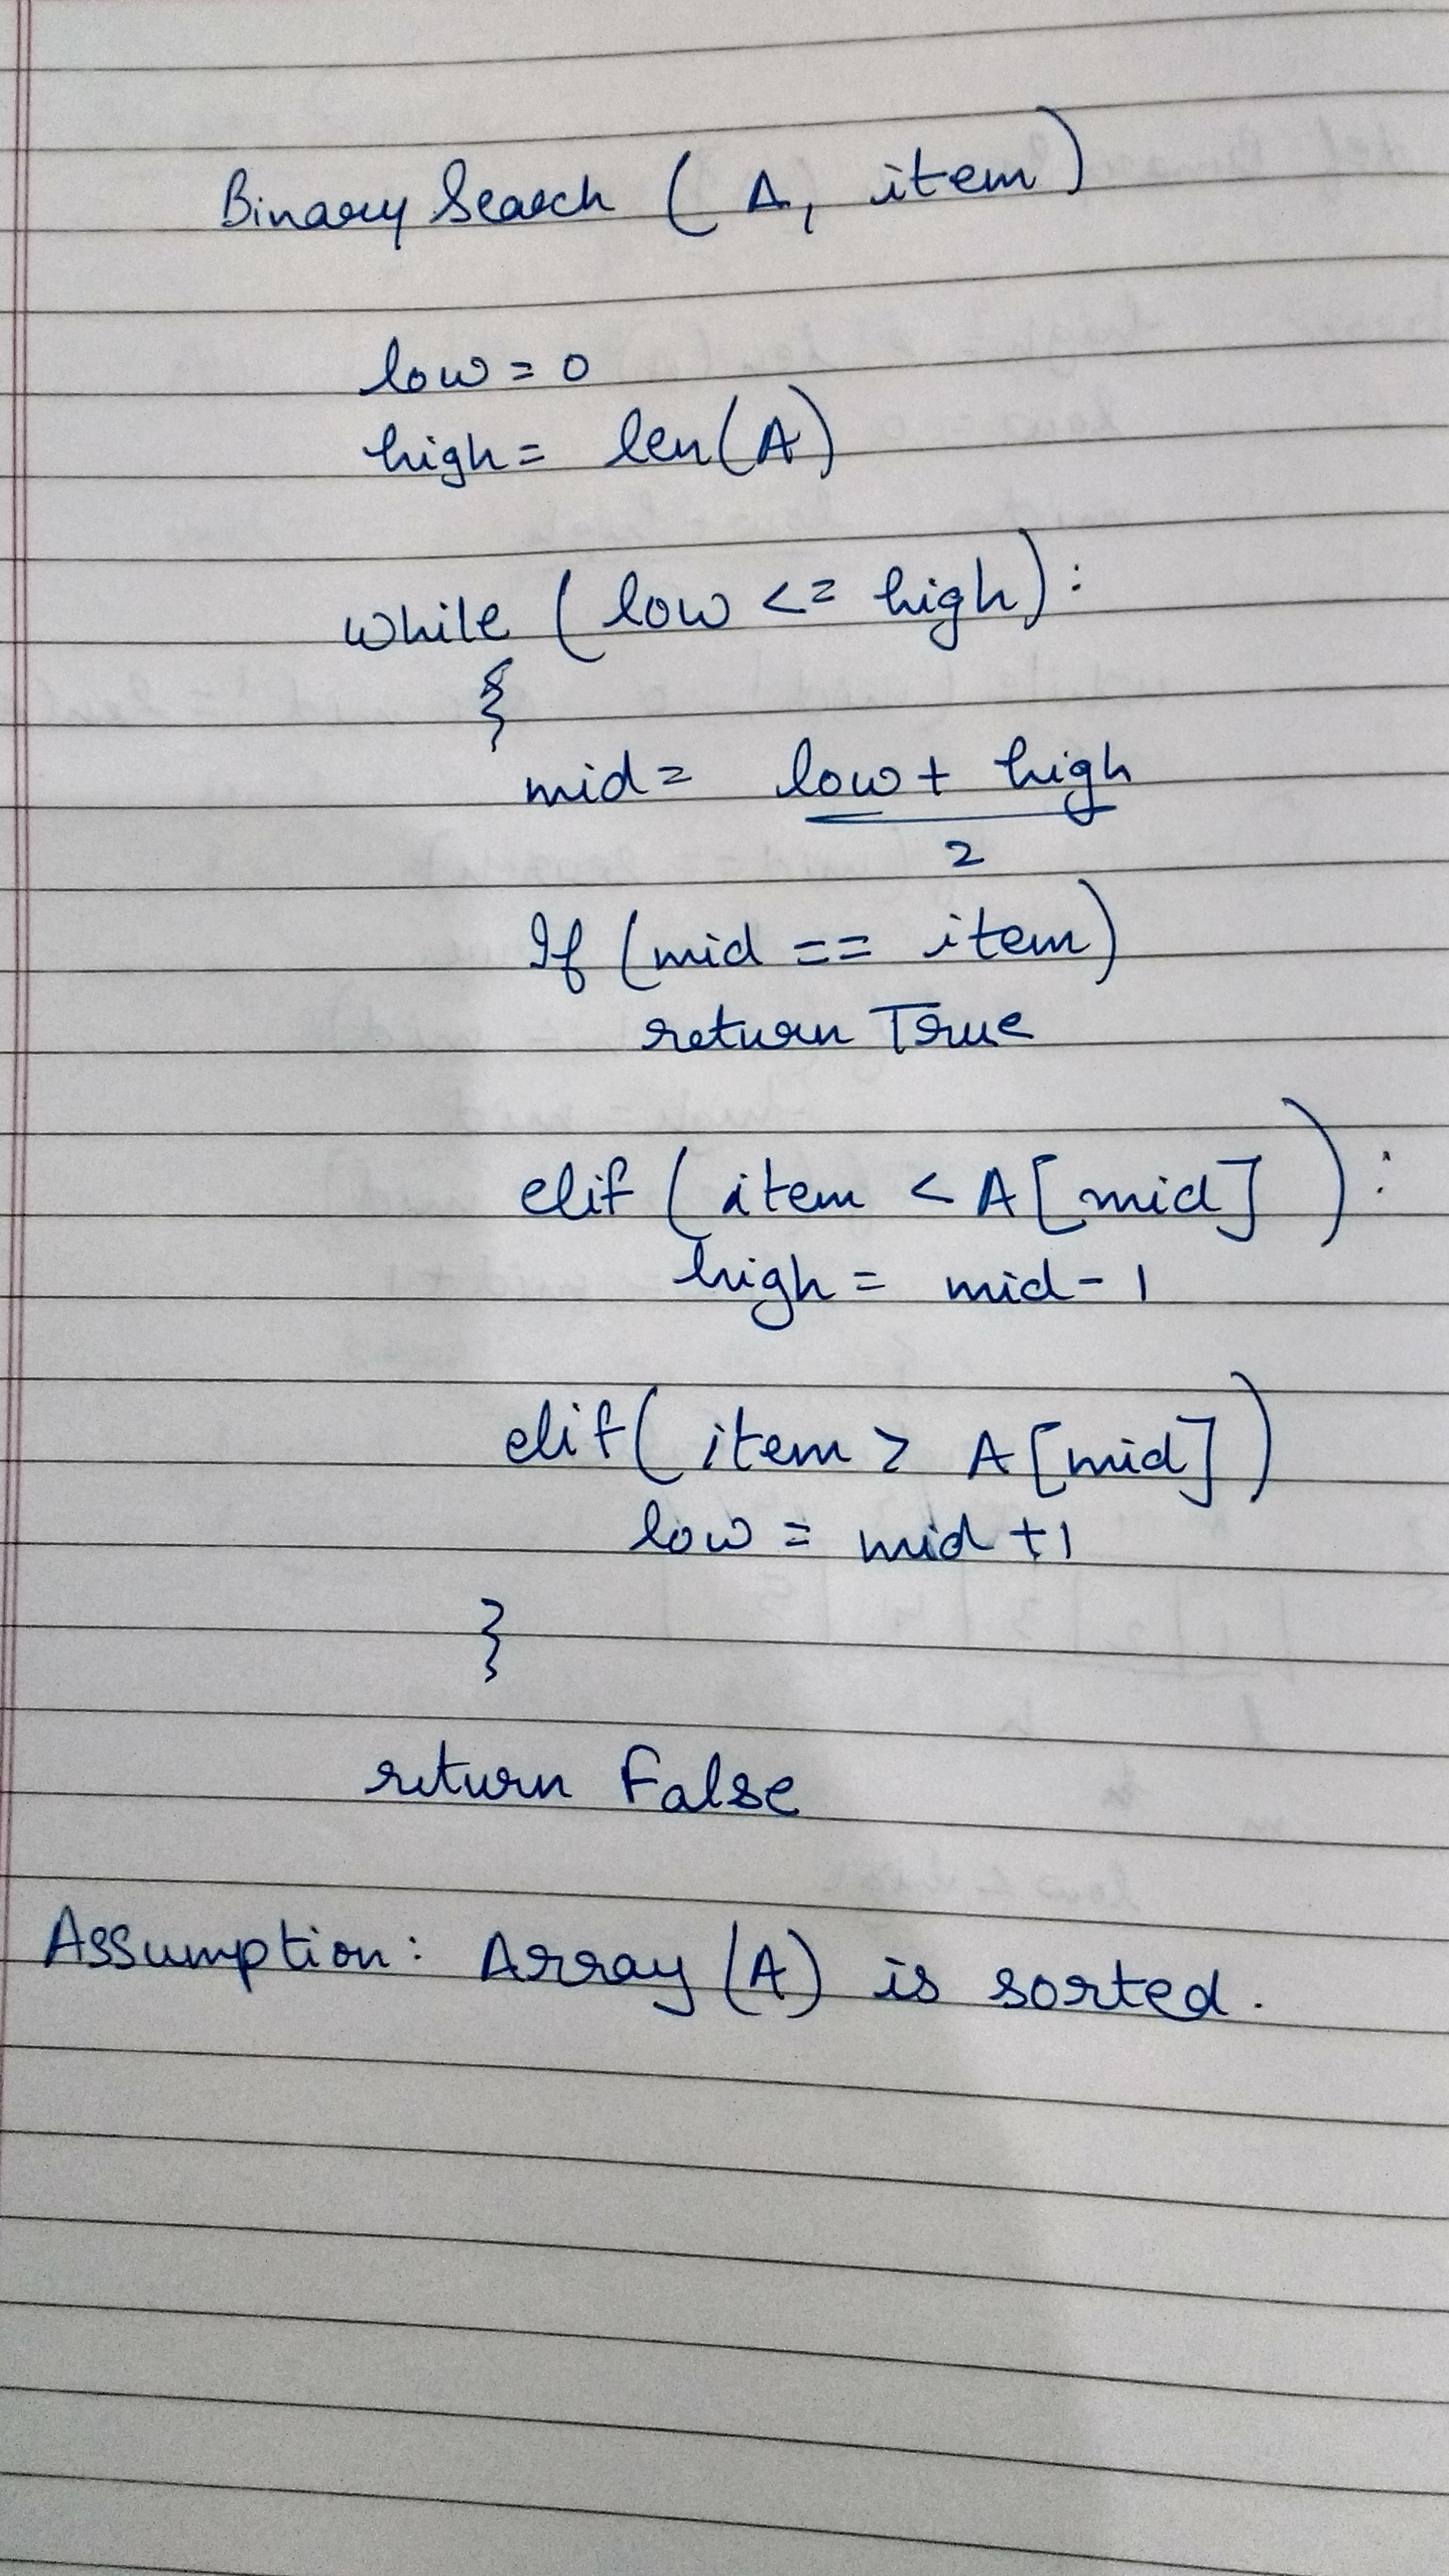 Binary Search ( A, item )
low = 0
high = len(A)
while ( low <= high ) :
{
mid = low + high
2
If ( mid == item )
return True
elif ( item < A[mid] ) :
high = mid - 1
elif ( item > A[mid] )
low = mid + 1
}
return False
Assumption : Array (A) is sorted.